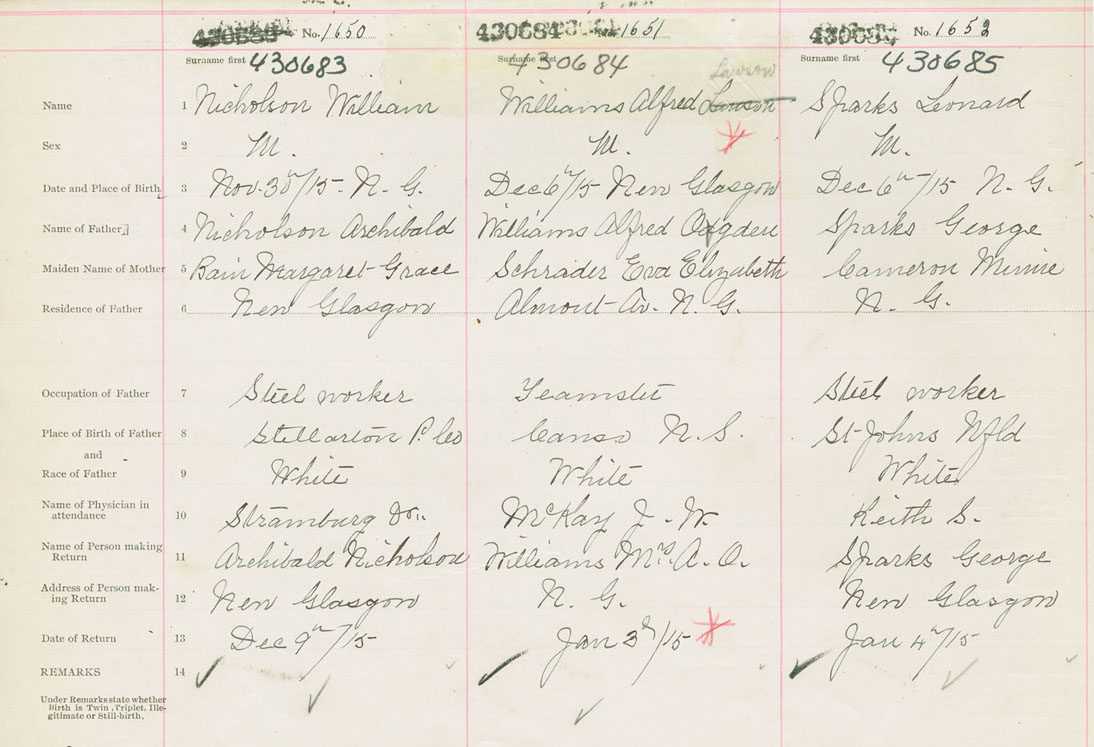 No. 1650 430684 No. 1651 No. 1652
Surname first 430683 Surname first 430684 Lawson Surname first 430685
Name 1 Nicholson William Williams Alfred Lawson Sparks Leonard
Sex 2 M. M. M.
Date and Place of Birth 3 Nov. 30th/15 - N. G. Dec 6th/15 New Glasgow Dec 6th/15 N. G.
Name of Father 4 Nicholson Archibald Williams Alfred Ogden Sparks George
Maiden Name of Mother 5 Bain Margaret Grace Schrader Eva Elizabeth Cameron Minnie
Residence of Father 6 New Glasgow Almont Av. N. G. N. G.
Occupation of Father 7 Steel worker Teamster Steel worker
Place of Birth of Father 8 Stellarton P. Co Canso N. S. St Johns Nfld
and
Race of Father 9 White White White
Name of Physician in
attendance 10 Dr. McKay J. W. Keith S.
Name of Person making
Return 11 Archibald Nicholson Williams Mrs A. O. Sparks George
Address of Person mak-
ing Return 12 New Glasgow N. G. New Glasgow
Date of Return 13 Dec 9th/15 Jan 3d/15 Jan 4th/15
REMARKS 14
Under Remarks state whether
Birth is Twin, Triplet, Ille-
gitimate or Still-birth.